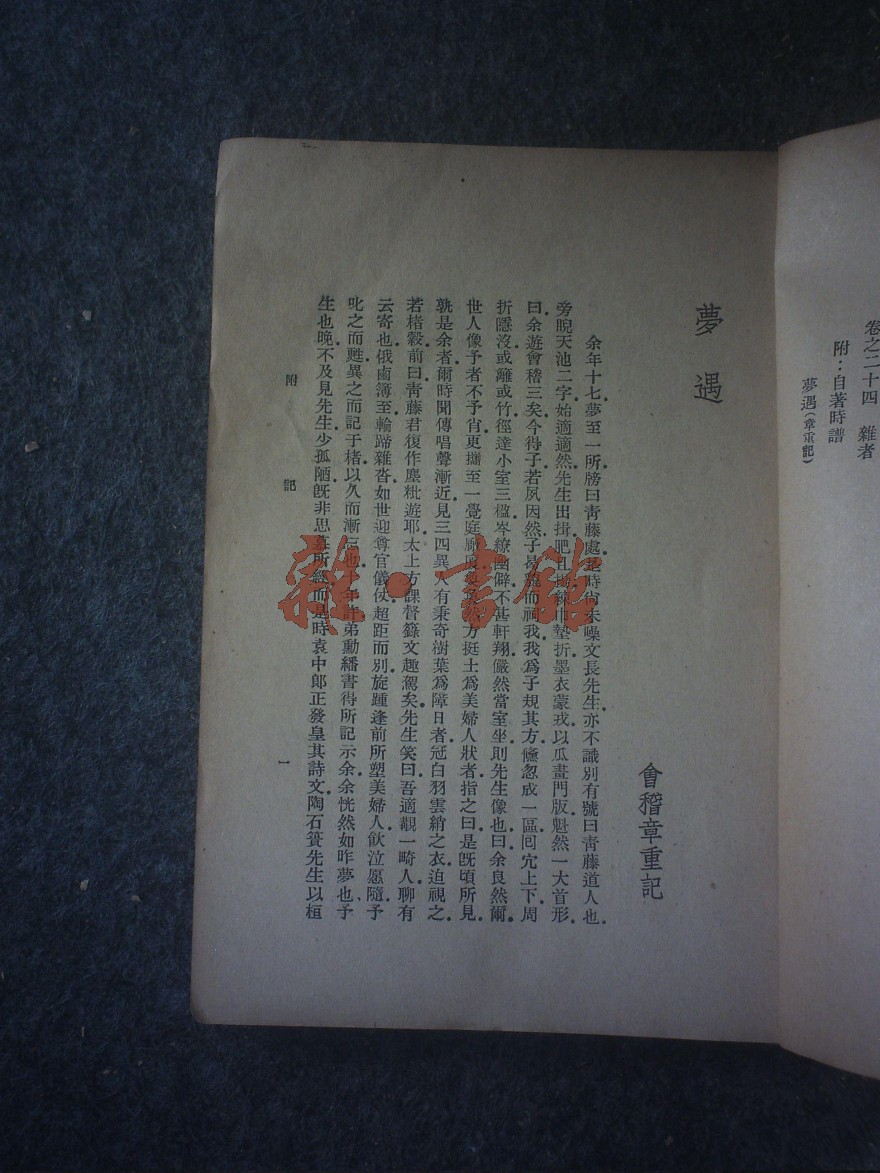 卷之二十四　雜著
附：自著畸譜
夢遇（章重記）
夢遇
會稽章重記
余年十七夢至一所．牓曰青藤處．是時尙未噪文長先生．亦不識別有號曰青藤道人也．
旁睨天池二字．始適適然．先生出揖．肥且 練巾墊折．墨衣蒙戎．以瓜畫門版．魁然一大首形．
曰．余遊會稽三矣．今得子若夙因然．子曷 而祠我．我爲子規其方．儵忽成一區．囘宂上下．周
折隱沒．或籬或竹．徑達小室三楹．岑繚幽僻．不甚軒翔．儼然當室坐．則先生像也．曰．余良然爾．
世人像予者不予肖．更攜至一黌．庭廡 方挺土爲美婦人狀者．指之曰．是旣頃所見．
孰是余者．爾時聞傳唱聲漸近．見三四異人．有秉奇樹葉爲障日者．冠白羽雲綃之衣．迫視之．
若楮縠．前曰．青藤君復作塵粃遊耶．太上方課督籙文趣駕矣．先生笑曰．吾適覯一畸人．聊有
云寄也．俄鹵簿至．輪蹄雜沓．如世迎尊官儀仗．超距而別．旋踵逢前所塑美婦人．飮泣愿隨．予
叱之而甦．異之而記于楮．以久而漸 也． 年許．弟勳繙書得所記示余．余恍然如昨夢也．予
生也晚．不及見先生．少孤陋．旣非思慕所經．而是時袁中郎正發皇其詩文．陶石簣先生以桓
附記
一
雜·書館